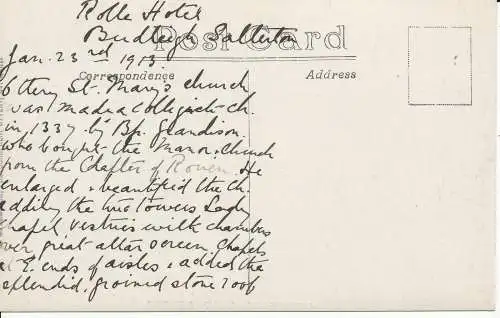 Rolle Hotel
Budleigh Salterton
Post Card
Jan. 23rd 1913.
Correspondence
Address
Ottery St. Mary's church
was made a Collegiate ch.
in 1337 by Bp. Grandison.
who bought the Manor & church
from the Chapter of Rouen. He
enlarged & beautified the ch.
adding the two towers Lady
chapel vestries with chambers
over great altar screen chapels
at E. ends of aisles & added the
splendid, groined stone roof